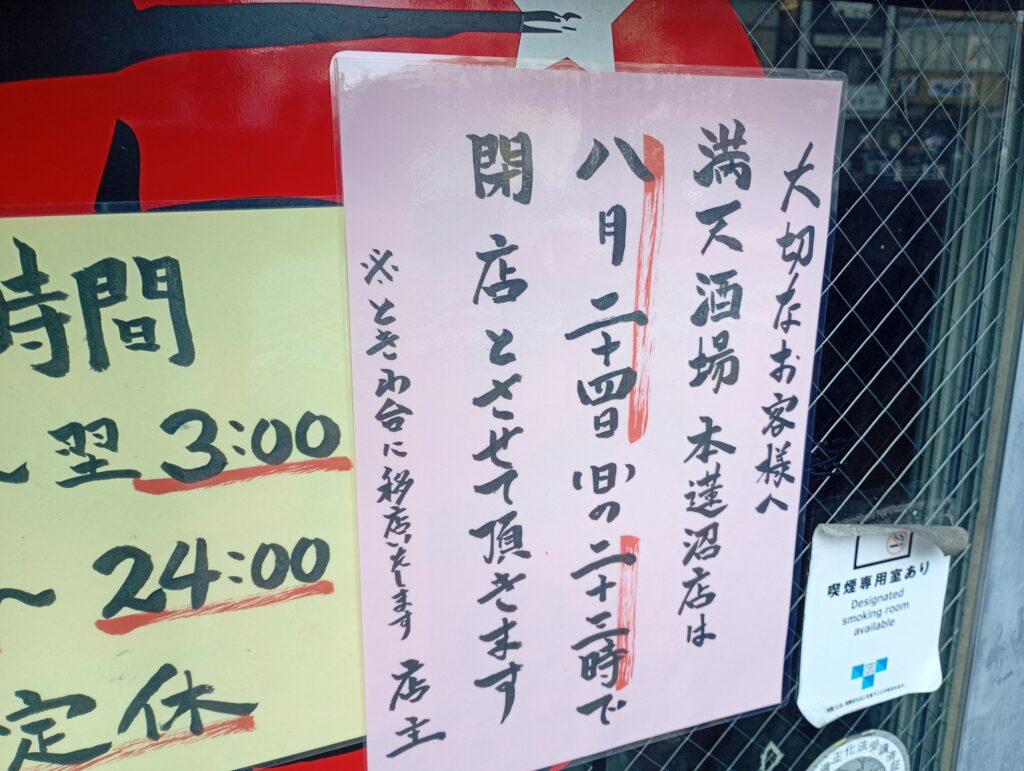 大切なお客様へ
満天酒場 本蓮沼店は
八月二十四日(日)の二十三時で
閉店とさせて頂きます
※ときわ台に移店いたします 店主
時間
〜翌3:00
〜24:00
定休
喫煙専用室あり
Designated
smoking room
available